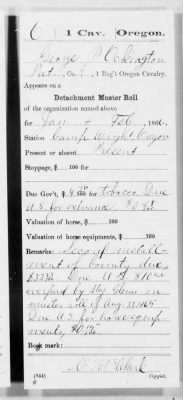 C | 1 Cav. | Oregon.
George P.
Pvt., Co. , 1 Reg't Oregon Cavalry.
Appears on a
Detachment Muster Roll
of the organization named above
for Jan & Feb, 1866.
Station Camp Wright, Oregon
Present or absent Present
Stoppage, $ 100 for
Due Gov't, $ 100 for tobacco Due
U.S. for
Valuation of horse, $ 100
Valuation of horse equipments, $ 100
Remarks: Second install-
ment of bounty due
Due U.S. $
overpaid by Maj. on
muster roll of Aug. 31, 1865
Due U.S. for horse equip-
ments
Book mark:
(541)
Copyist.